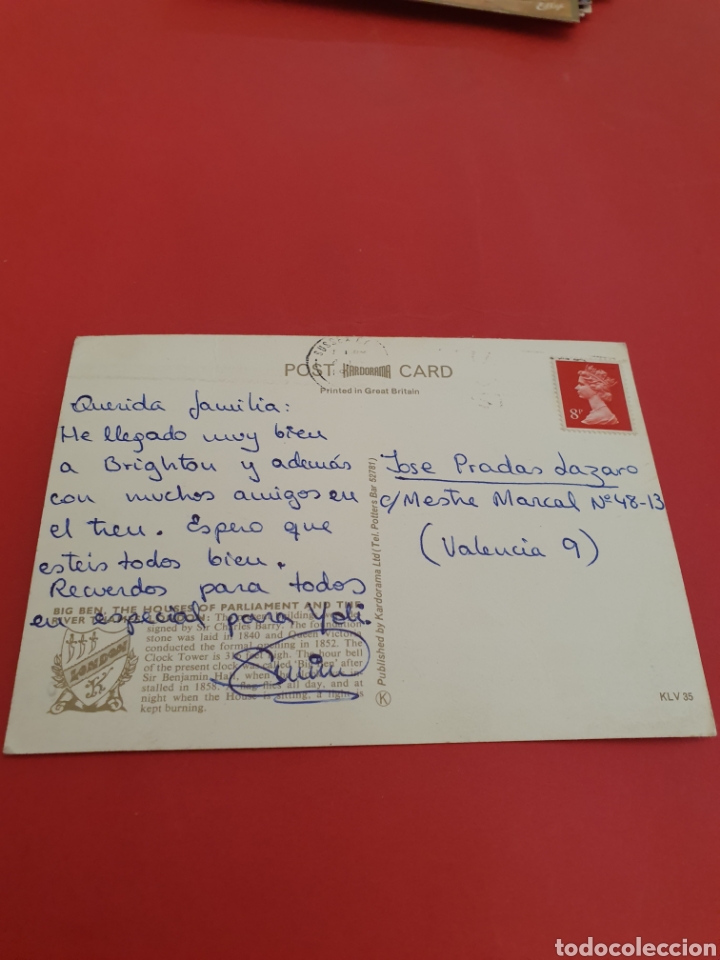 POST KARDORAMA CARD
Printed in Great Britain
8P
Querida familia:
He llegado muy bien
a Brighton y además
con muchos amigos en
el tren. Espero que
esteis todos bien.
Recuerdos para todos
en especial para Yoli.
Jose Pradas Lazaro
c/Mestre Marcal Nº48-13
(Valencia 9)
BIG BEN, THE HOUSES OF PARLIAMENT AND THE
RIVER
signed by Sir Charles Barry. The foundation
stone was laid in 1840 and Queen Victoria
conducted the formal opening in 1852. The
Clock Tower is high. The hour bell
of the present clock was called 'Big Ben' after
Sir Benjamin Hall, when
stalled in 1858. A flag flies all day, and at
night when the House is sitting, a
kept burning.
LONDON
Published by Kardorama Ltd (Tel. Potters Bar 52781)
K
KLV 35
todocoleccion